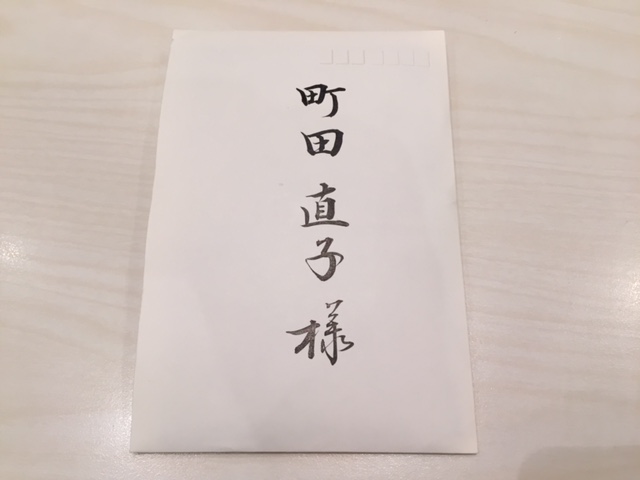 町田直子様